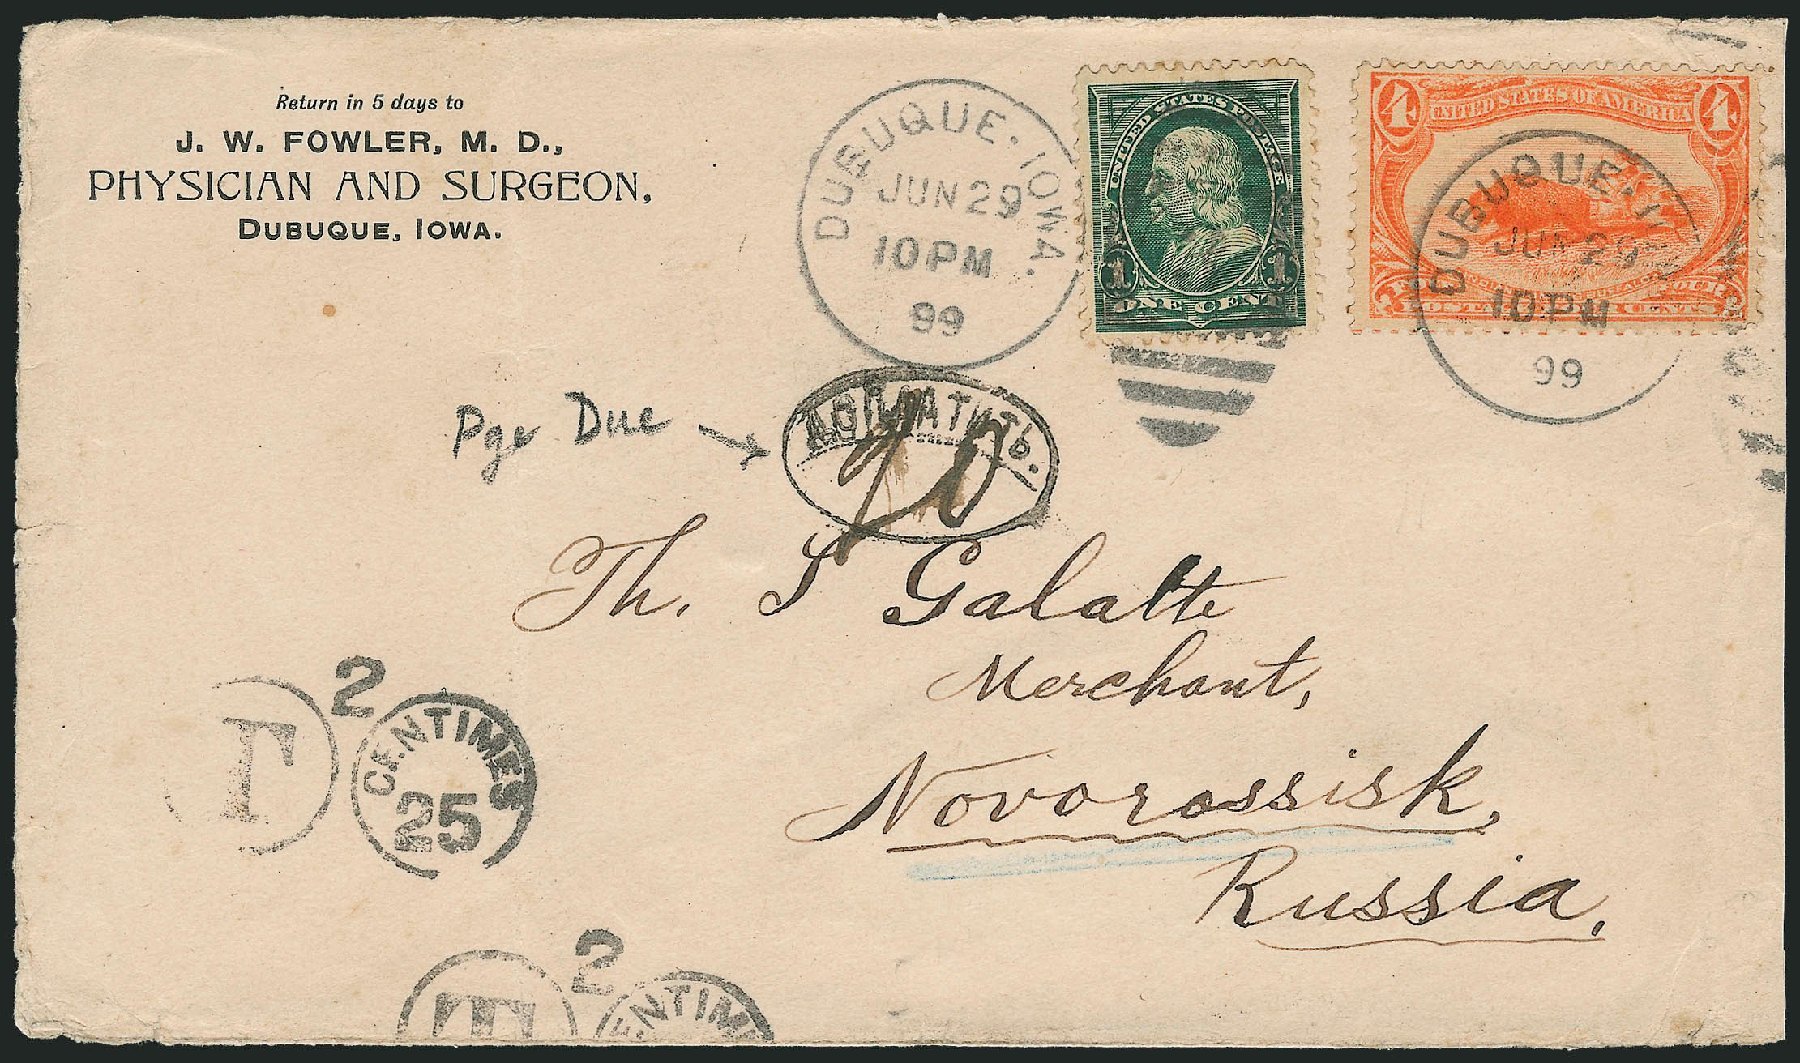 Return in 5 days to
J. W. FOWLER, M. D.,
PHYSICIAN AND SURGEON,
DUBUQUE, IOWA.
DUBUQUE. IOWA.
JUN 29
10 PM
99
UNITED STATES POSTAGE
1 1
ONE CENT
4 4
UNITED STATES OF AMERICA
CENTS
DUBUQUE.
JUN 29
10 PM
99
Pge Due
ДОПЛАТИТЬ.
Th. S Galatte
Merchant,
Novorossisk,
Russia,
T
2
CENTIMES
25
T
2
ENTIM